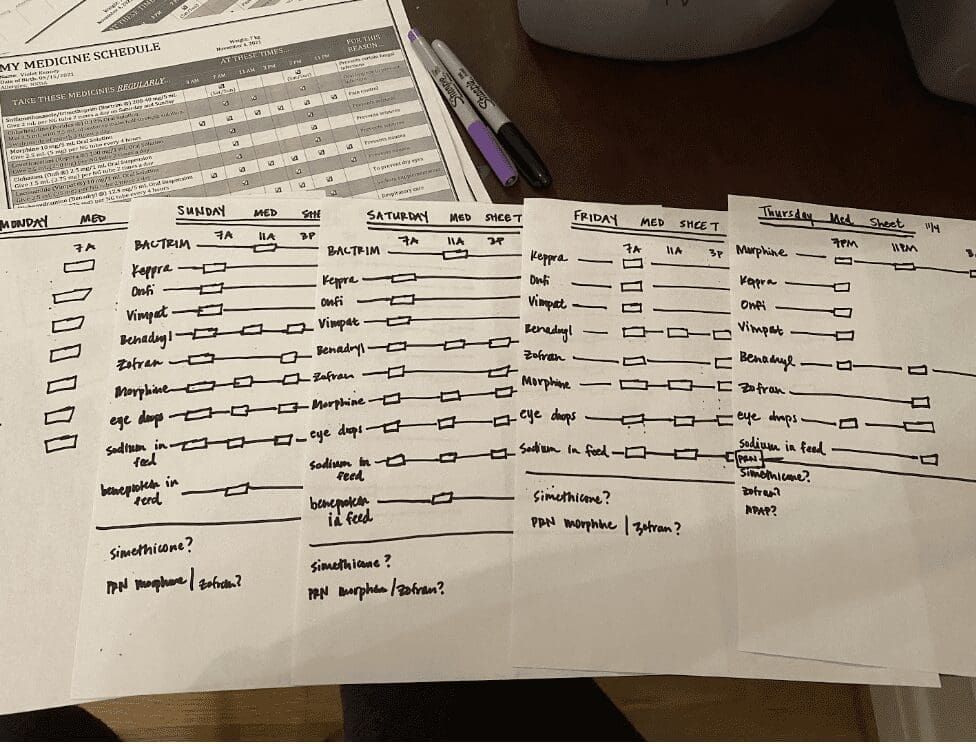 MY MEDICINE SCHEDULE
Weight: 7 kg
November 4, 2021
Date of Birth: 05/15/2021
AT THESE TIMES...
FOR THIS REASON
TAKE THESE MEDICINES REGULARLY...
3 AM 7 AM 11 AM 3 PM 7 PM 11 PM
(Sat/Sun)
(Sat/Sun)
Give 2 mL per NG tube 2 times a day on Saturday and Sunday
Morphine 10 mg/5 mL Oral Solution
Pain control
To prevent dry eyes
Respiratory care
Sharpie
Sharpie
MONDAY MED
7A
SUNDAY MED SHE
7A 11A 3P
BACTRIM
Keppra
Onfi
Vimpat
Benadryl
Zofran
Morphine
eye drops
sodium in feed
beneprotein in feed
simethicone?
PRN morphine / zofran?
SATURDAY MED SHEET
7A 11A 3P
BACTRIM
Keppra
Onfi
Vimpat
Benadryl
Zofran
Morphine
eye drops
sodium in feed
beneprotein in feed
simethicone?
PRN morphine / zofran?
FRIDAY MED SHEET
7A 11A 3P
Keppra
Onfi
Vimpat
Benadryl
Zofran
Morphine
eye drops
Sodium in feed
Simethicone?
PRN morphine / zofran?
Thursday Med Sheet 11/4
7PM 11PM 3
Morphine
Keppra
Onfi
Vimpat
Benadryl
Zofran
eye drops
sodium in feed
PRN
Simethicone?
Zofran?
APAP?